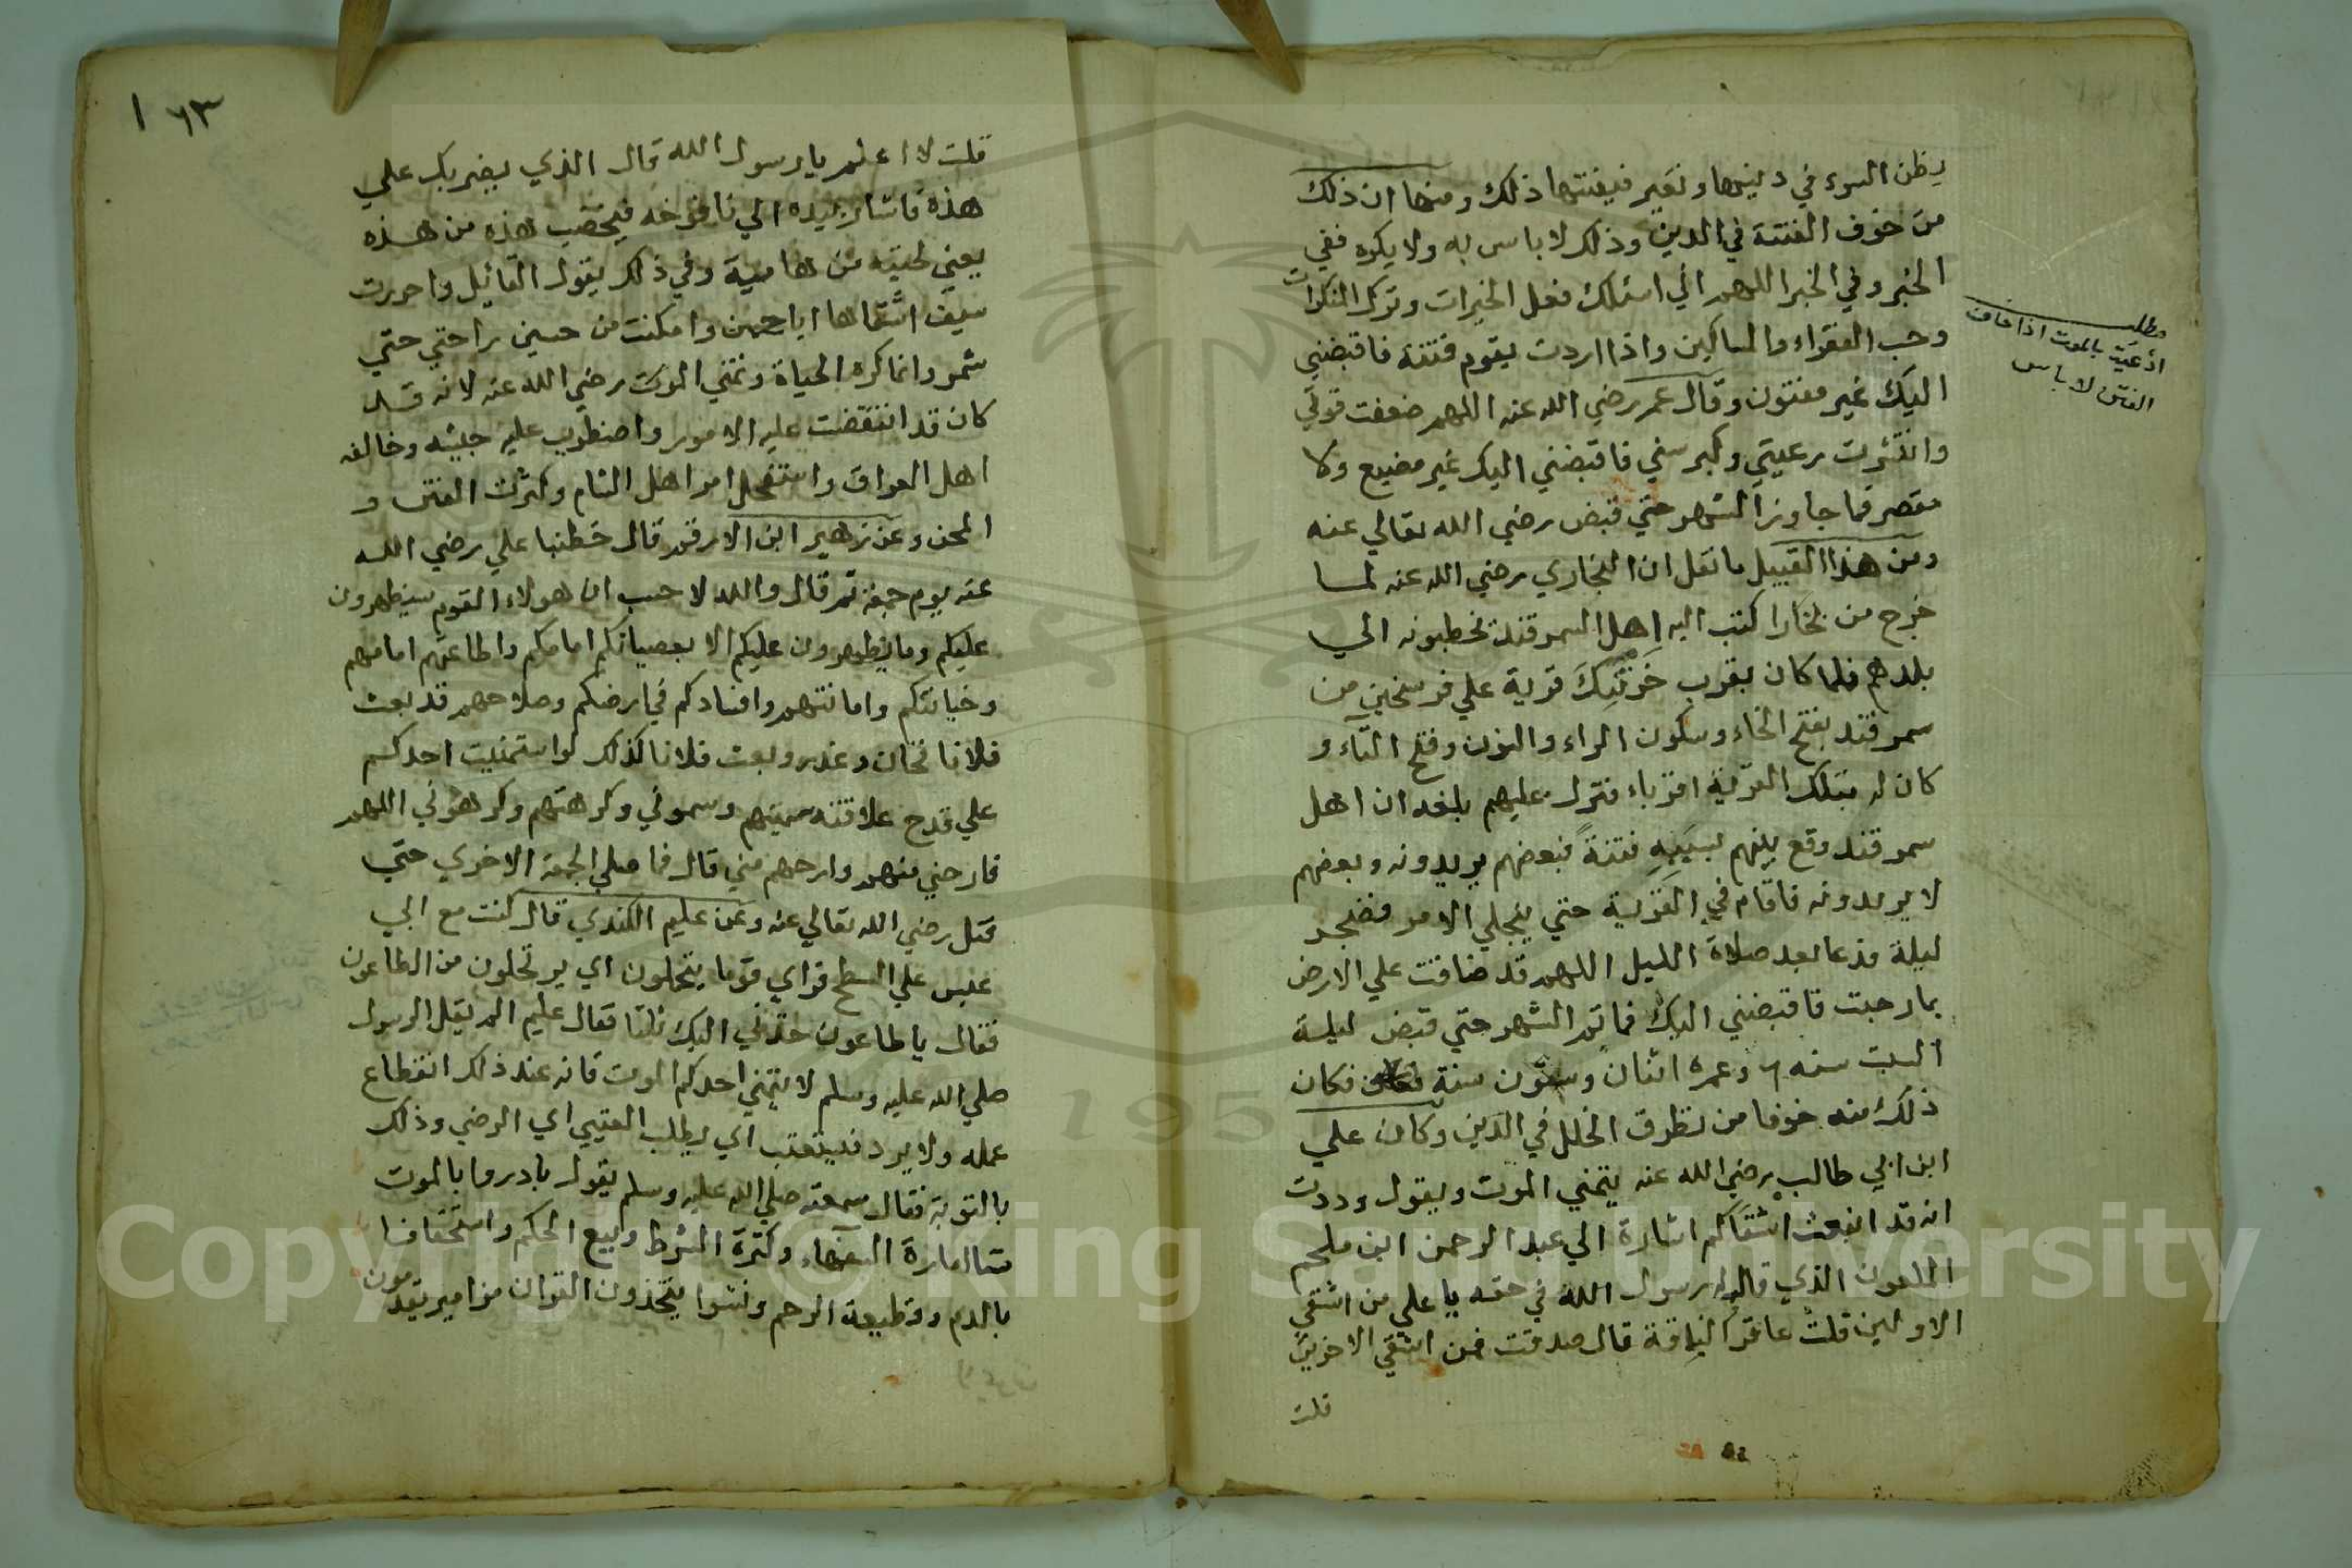 يظن السوء في دينها وتغير فيفتنها ذلك ومنها ان ذلك
من خوف الفتنة في الدين وذلك لا باس به ولا يكره ففي
الخبر وفي الخبر اللهم اني اسئلك فعل الخيرات وترك المنكرات
وحب الفقراء والمساكين واذا اردت بقوم فتنة فاقبضني
اليك غير مفتون وقال عمر رضي الله عنه اللهم ضعفت قوتي
وانتشرت رعيتي وكبر سني فاقبضني اليك غير مضيع ولا
مقصر فما جاوز الشهر حتي قبض رضي الله تعالي عنه
ومن هذا القبيل ما نقل ان البخاري رضي الله عنه لما
خرج من بخارا كتب اليه اهل السمرقند يخطبونه الي
بلدهم فلما كان بقرب خرتنك قرية علي فرسخين من
سمرقند بفتح الخاء وسكون الراء والنون وفتح التاء و
كان له بتلك القرية اقرباء فنزل عليهم بلغه ان اهل
سمرقند وقع بينهم بسببه فتنة فبعضهم يريدونه وبعضهم
لا يريدونه فاقام في القرية حتي ينجلي الامر فضجر
ليلة فدعا بعد صلاة الليل اللهم قد ضاقت علي الارض
بما رحبت فاقبضني اليك فما تم الشهر حتي قبض ليلة
السبت سنه ٦ وعمره اثنان وستون سنة فكان
ذلك منه خوفا من تطرق الخلل في الدين وكان علي
ابن ابي طالب رضي الله عنه يتمني الموت ويقول وددت
انه قد انبعث اشقاكم اشارة الي عبد الرحمن ابن ملجم
الملعون الذي قال له رسول الله في حقه يا علي من اشقي
الاولين قلت عاقر الناقة قال صدقت فمن اشقي الاخرين
قلت
مطلب
اذا خاف
بالموت
الفتن لا باس
١٦٣
قلت لا اعلم يا رسول الله قال الذي يضربك علي
هذه فاشار بيده الي نافوخه فيخضب هذه من هذه
يعني لحيته من هامية وفي ذلك يقول القائيل واحررت
سيف اشقاها ابا حسن وامكنت من حسين راحتي حتي
شمر وانما كره الحياة وتمني الموت رضي الله عنه لانه قد
كان قد انتقضت عليه الامور واضطرب عليه جيشه وخالفه
اهل العراق واستفحل امر اهل الشام وكثرت الفتن و
المحن وعن زهير ابن الارقم قال خطبنا علي رضي الله
عنه يوم جمعة ثم قال والله لاحسب ان هولاء القوم سيظهرون
عليكم وما يظهرون عليكم الا بعصيانكم امامكم واطاعتهم امامهم
وخيانتكم وامانتهم وافسادكم في ارضكم وصلاحهم قد بعثت
فلانا فخان وغدر وبعثت فلانا كذلك لو استمنيت احدكم
علي قدح علاقته سميتهم وسموني وكرهتهم وكرهوني اللهم
فارحني منهم وارحهم مني قال فما صلي الجمعة الاخري حتي
قتل رضي الله تعالي عنه وعن عليم الكندي قال كنت مع ابي
عبس علي السطح فراي قوما يتحملون اي يرتحلون من الطاعون
فقال يا طاعون خذني اليك ثلثا فقال عليم الم يقل الرسول
صلي الله عليه وسلم لا يتمني احدكم الموت فانه عند ذلك انقطاع
عمله ولا يرد فيستعتب اي يطلب العتبي اي الرضي وذلك
بالتوبة فقال سمعته صلي الله عليه وسلم يقول بادروا بالموت
ستا امارة السفهاء وكثرة الشرط وبيع الحكم واستخفافا
بالدم وقطيعة الرحم ونشوا يتخذون القران مزامير يقدمون
Copyright © King Saud University
195